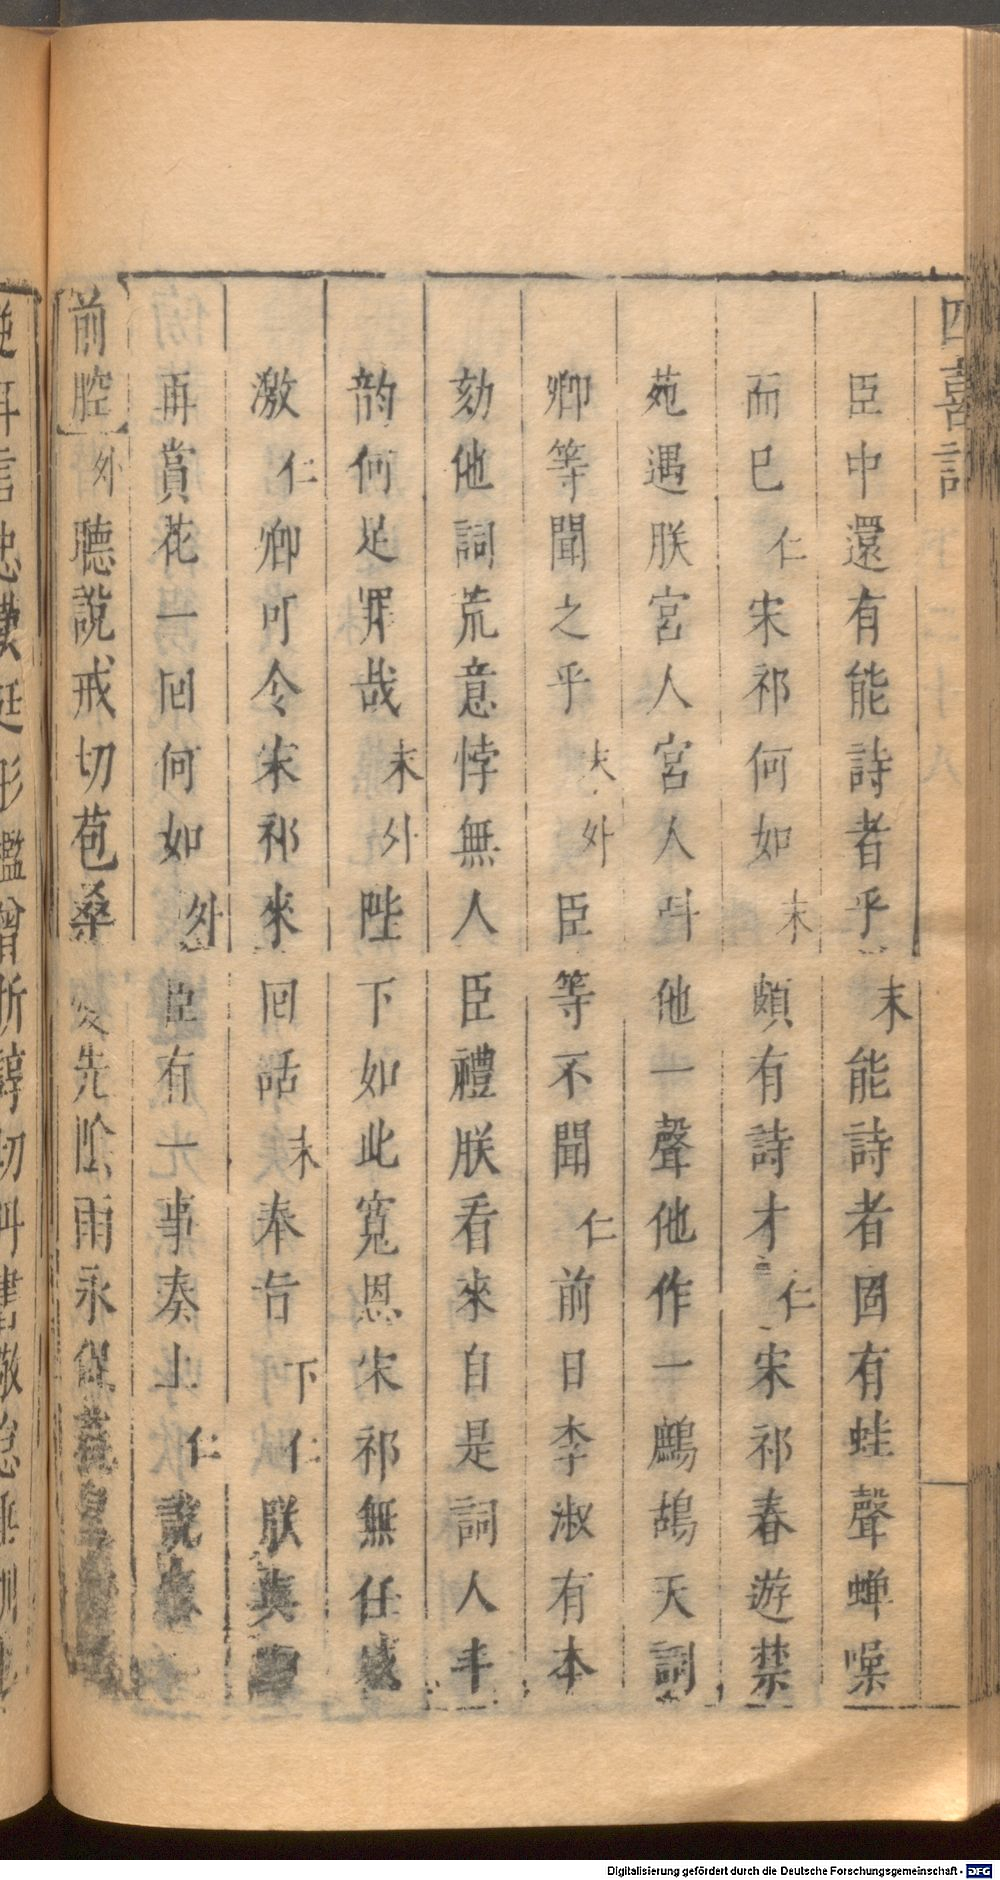 四喜記
臣中還有能詩者乎末能詩者固有蛙聲蟬噪
而巳仁宋祁何如末頗有詩才仁宋祁春遊禁
苑遇朕宮人宮人呌他一聲他作一鷓鴣天詞
卿等聞之乎末外臣等不聞仁前日李淑有本
劾他詞荒意悖無人臣禮朕看來自是詞人丰
韵何足罪哉末外陛下如此寬恩宋祁無任感
激仁卿可令宋祁來回話末奉旨下仁朕與
再賞花一回何如外臣有一事奏上仁說來
前腔外聽說戒切苞桑先陰雨永
Digitalisierung gefördert durch die Deutsche Forschungsgemeinschaft - DFG